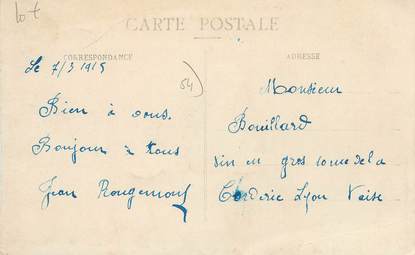 lot
CARTE POSTALE
CORRESPONDANCE
ADRESSE
Le 7/3 1915
54
Bien à vous.
Bonjour à tous
Jean Rougemont
Monsieur
Bouillard
vin en gros rue de la
Corderie Lyon Vaise